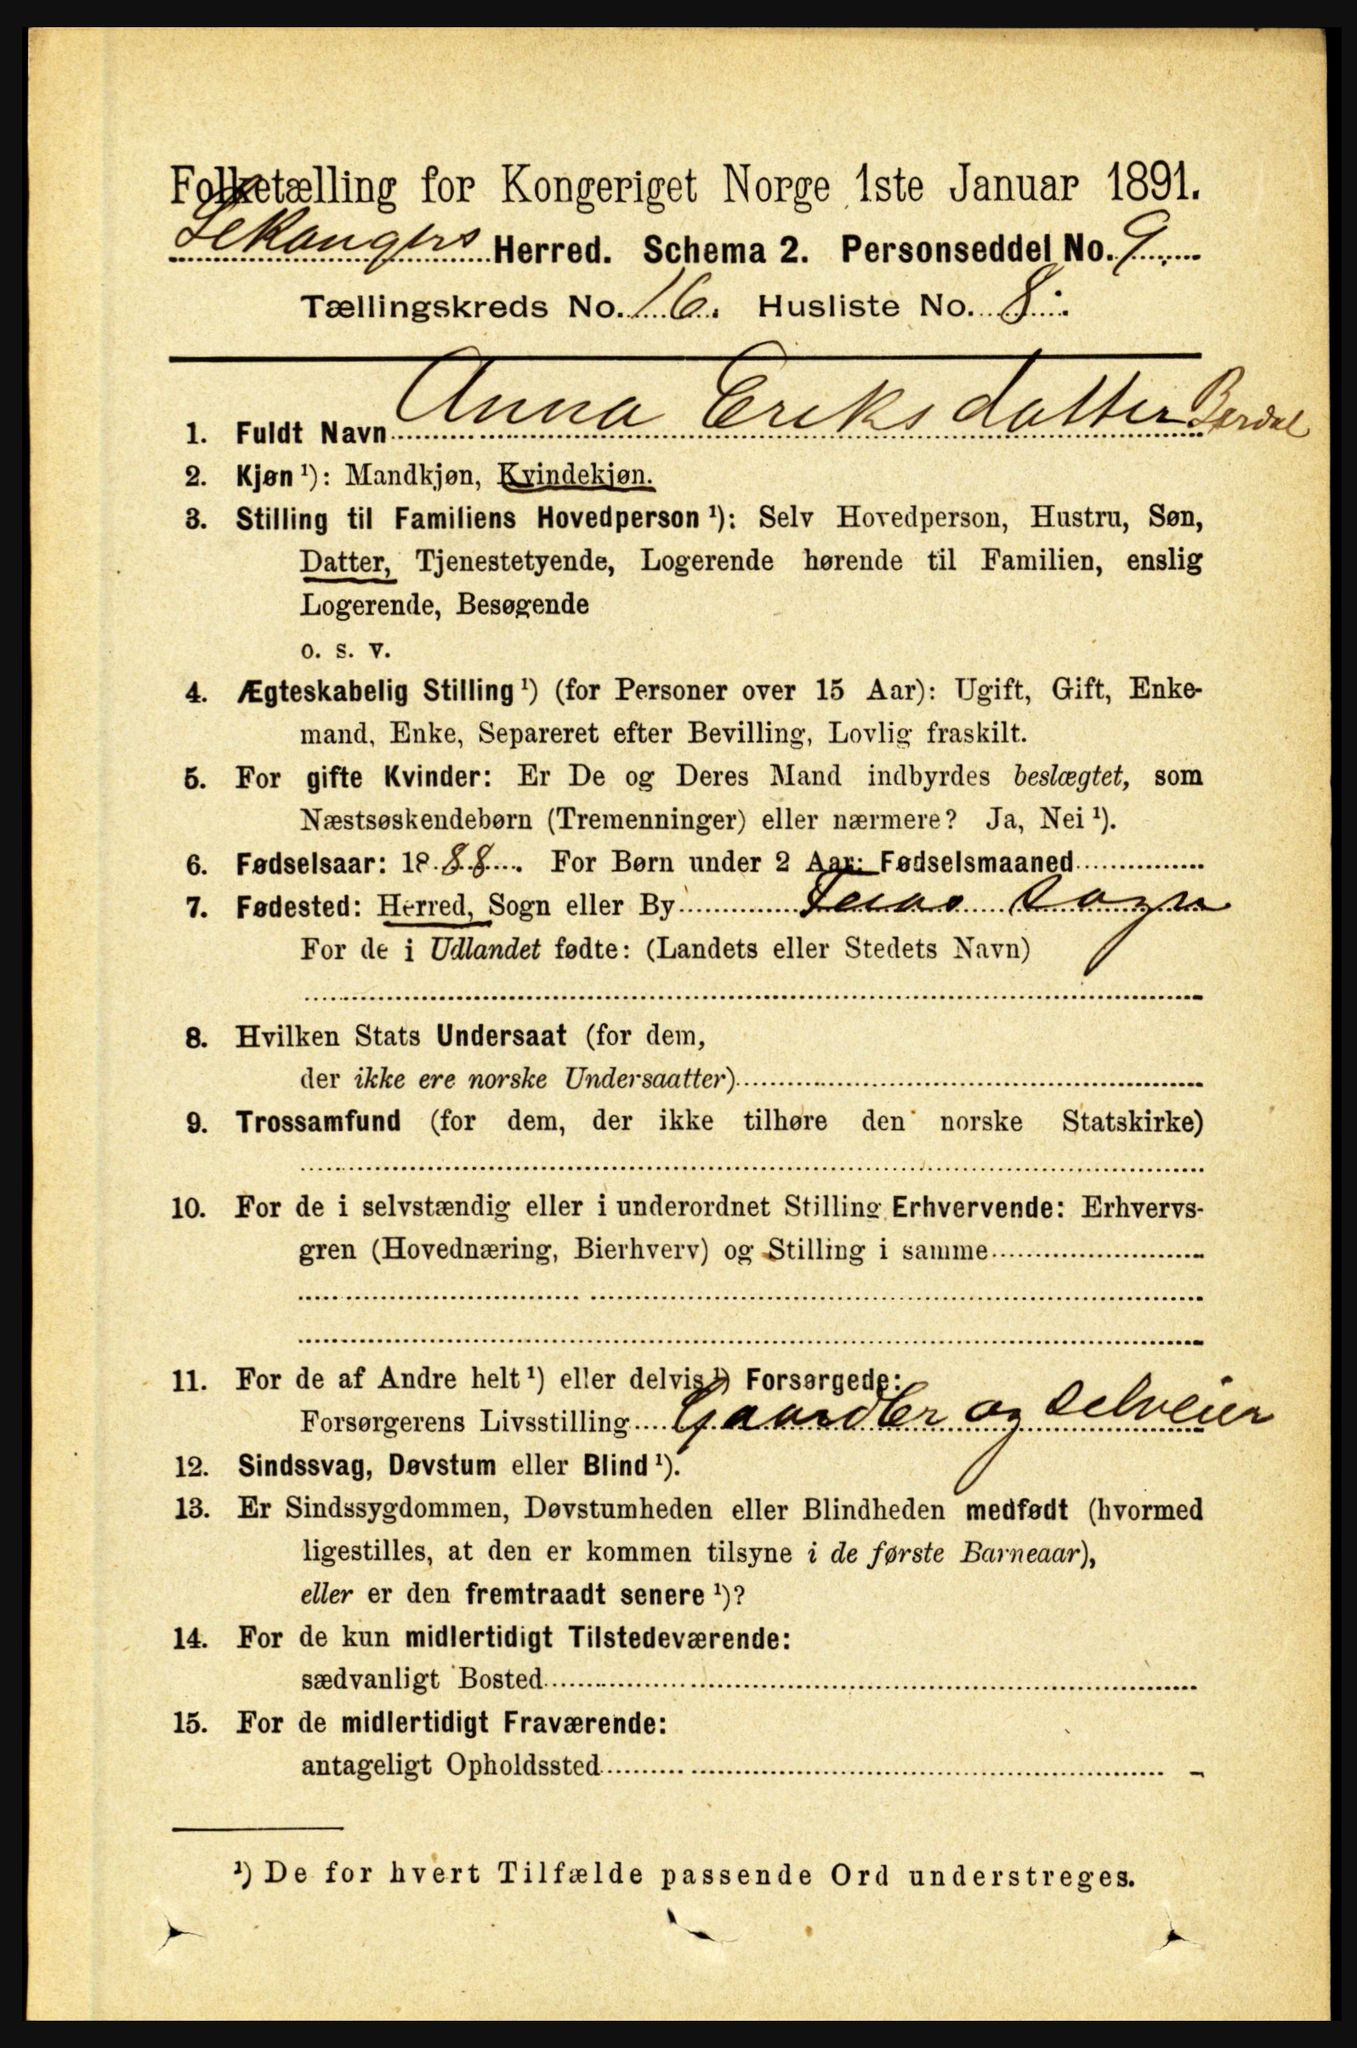 Folketælling for Kongeriget Norge 1ste Januar 1891.
Lekangers Herred. Schema 2. Personseddel No. 9
Tællingskreds No. 16. Husliste No. 8.
1. Fuldt Navn Anna Eriksdatter Berdal
2. Kjøn ¹): Mandkjøn, Kvindekjøn.
3. Stilling til Familiens Hovedperson ¹): Selv Hovedperson, Hustru, Søn,
Datter, Tjenestetyende, Logerende hørende til Familien, enslig
Logerende, Besøgende
o. s. v.
4. Ægteskabelig Stilling ¹) (for Personer over 15 Aar): Ugift, Gift, Enke-
mand, Enke, Separeret efter Bevilling, Lovlig fraskilt.
5. For gifte Kvinder: Er De og Deres Mand indbyrdes beslægtet, som
Næstsøskendebørn (Tremenninger) eller nærmere? Ja, Nei ¹).
6. Fødselsaar: 1888. For Børn under 2 Aar: Fødselsmaaned
7. Fødested: Herred, Sogn eller By Feios Sogn
For de i Udlandet fødte: (Landets eller Stedets Navn)
8. Hvilken Stats Undersaat (for dem,
der ikke ere norske Undersaatter)
9. Trossamfund (for dem, der ikke tilhøre den norske Statskirke)
10. For de i selvstændig eller i underordnet Stilling Erhvervende: Erhvervs-
gren (Hovednæring, Bierhverv) og Stilling i samme
11. For de af Andre helt ¹) eller delvis ¹) Forsørgede:
Forsørgerens Livsstilling Gaardbr og Selveier
12. Sindssvag, Døvstum eller Blind ¹).
13. Er Sindssygdommen, Døvstumheden eller Blindheden medfødt (hvormed
ligestilles, at den er kommen tilsyne i de første Barneaar),
eller er den fremtraadt senere ¹)?
14. For de kun midlertidigt Tilstedeværende:
sædvanligt Bosted
15. For de midlertidigt Fraværende:
antageligt Opholdssted
¹) De for hvert Tilfælde passende Ord understreges.